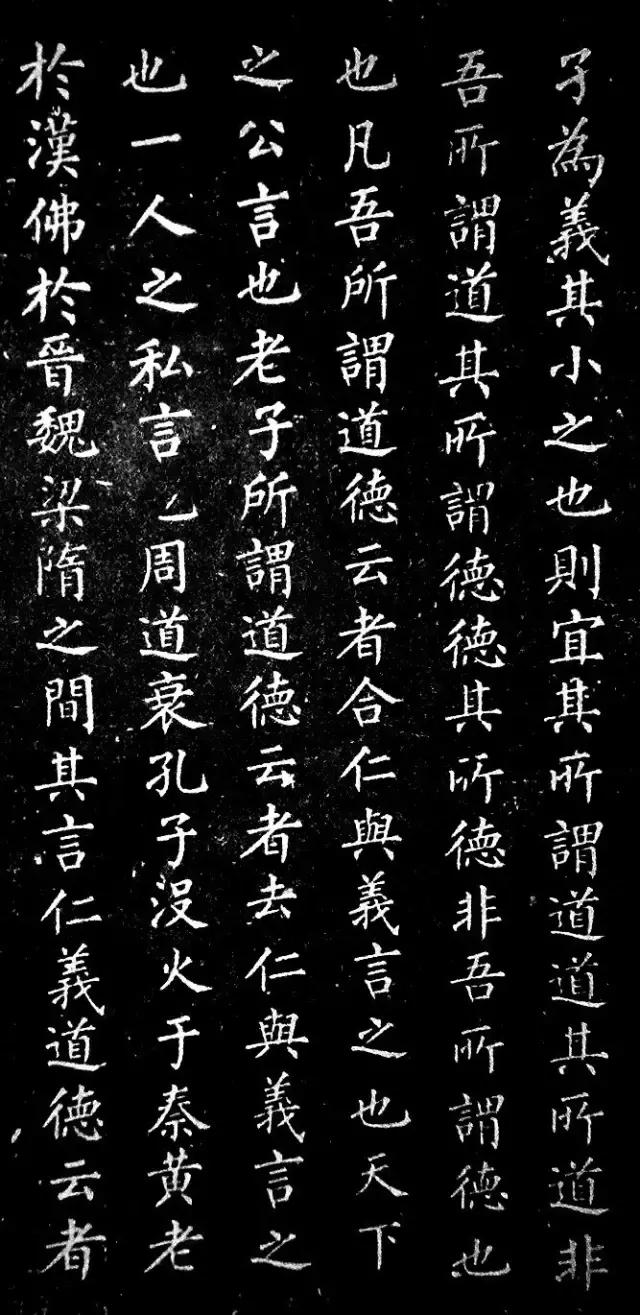 孑為義其小之也則宜其所謂道道其所道非
吾所謂道其所謂德德其所德非吾所謂德也
也凡吾所謂道德云者合仁與義言之也天下
之公言也老子所謂道德云者去仁與義言之
也一人之私言也周道衰孔子没火于秦黄老
於漢佛於晉魏梁隋之間其言仁義道德云者